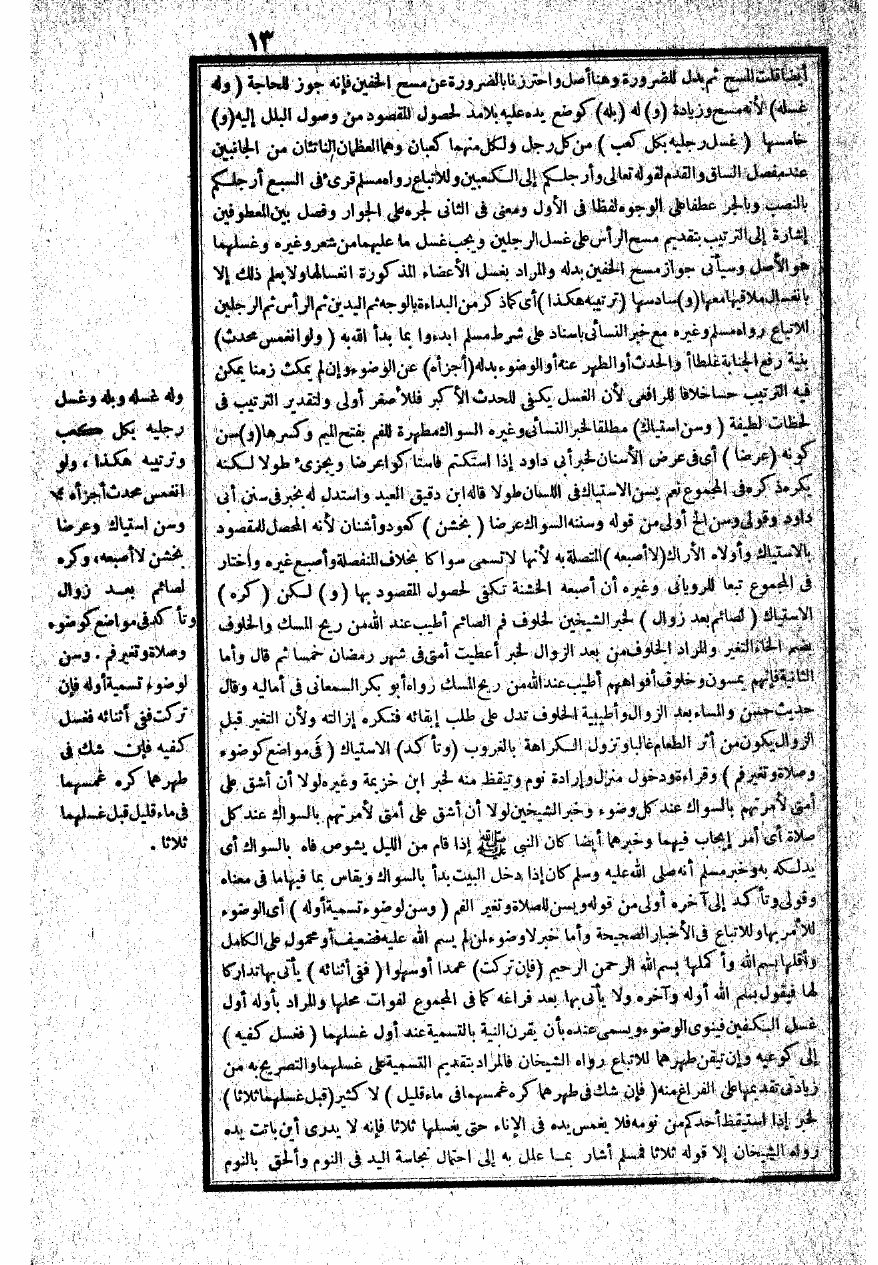 ١٣
أيضا قلت المسح ثم بدل للضرورة وهنا أصل واحترزنا بالضرورة عن مسح الخفين فإنه جوز للحاجة ( وله
غسله) لأنه مسح وزيادة (و) له (بله) كوضع يده عليه بلا مد لحصول المقصود من وصول البلل إليه (و)
خامسها ( غسل رجليه بكل كعب ) من كل رجل ولكل منهما كعبان وهما العظمان الناتئان من الجانبين
عند مفصل الساق والقدم لقوله تعالى وأرجلكم إلى الكعبين وللاتباع رواه مسلم قرئ فى السبع أرجلكم
بالنصب وبالجر عطفا على الوجوه لفظا فى الأول ومعنى فى الثانى لجره على الجوار وفصل بين المعطوفين
إشارة إلى الترتيب بتقديم مسح الرأس على غسل الرجلين ويجب غسل ما عليهما من شعر وغيره وغسلهما
هو الأصل وسيأتى جواز مسح الخفين بدله والمراد بغسل الأعضاء المذكورة انغسالها ولا يعلم ذلك إلا
بانغسال ملاقيها معها (و) سادسها (ترتيبه هكذا ) أى كما ذكر من البداءة بالوجه ثم اليدين ثم الرأس ثم الرجلين
للاتباع رواه مسلم وغيره مع خبر النسائى باسناد على شرط مسلم ابدءوا بما بدأ الله به ( ولو انغمس محدث)
بنية رفع الجنابة غلطا أو الحدث أو الطهر عنه أو الوضوء بدله (أجزأه) عن الوضوء وإن لم يمكث زمنا يمكن
فيه الترتيب حسا خلافا للرافعى لأن الغسل يكفى للحدث الأكبر فللأصغر أولى ولتقدير الترتيب فى
لحظات لطيفة ( وسن استياك) مطلقا لخبر النسائى وغيره السواك مطهرة للفم بفتح الميم وكسرها (و) سن
كونه (عرضا ) أى فى عرض الأسنان لخبر أبى داود إذا استكتم فاستاكوا عرضا ويجزىء طولا لكنه
يكره ذكره فى المجموع نعم يسن الاستياك فى اللسان طولا قاله ابن دقيق العيد واستدل له بخبر فى سنن أبى
داود وقولى وسن الخ أولى من قوله وسننه السواك عرضا ( بخشن ) كعود وأشنان لأنه المحصل للمقصود
بالاستياك وأولاه الأراك (لا أصبعه ) المتصلة به لأنها لا تسمى سواكا بخلاف المنفصلة وأصبع غيره واختار
فى المجموع تبعا للرويانى وغيره أن أصبعه الخشنة تكفى لحصول المقصود بها (و) لكن ( كره )
الاستياك ( لصائم بعد زوال ) لخبر الشيخين لخلوف فم الصائم أطيب عند الله من ريح المسك والخلوف
بضم الخاء التغير والمراد الخلوف من بعد الزوال لخبر أعطيت أمتى فى شهر رمضان خمسا ثم قال وأما
الثانية فإنهم يمسون وخلوف أفواههم أطيب عند الله من ريح المسك رواه أبو بكر السمعانى فى أماليه وقال
حديث حسن والمساء بعد الزوال وأطيبية الخلوف تدل على طلب إبقائه فتكره إزالته ولأن التغير قبل
الزوال يكون من أثر الطعام غالبا وتزول الكراهة بالغروب (وتأكد) الاستياك ( فى مواضع كوضوء
وصلاة وتغير فم ) وقراءة ودخول منزل وإرادة نوم وتيقظ منه لخبر ابن خزيمة وغيره لولا أن أشق على
أمتى لأمرتهم بالسواك عند كل وضوء وخبر الشيخين لولا أن أشق على أمتى لأمرتهم بالسواك عند كل
صلاة أى أمر إيجاب فيهما وخبرهما أيضا كان النبى ﷺ إذا قام من الليل يشوص فاه بالسواك أى
يدلكه به وخبر مسلم أنه صلى الله عليه وسلم كان إذا دخل البيت بدأ بالسواك ويقاس بما فيها ما فى معناه
وقولى وتأكد إلى آخره أولى من قوله ويسن للصلاة وتغير الفم ( وسن لوضوء تسمية أوله ) أى الوضوء
للأمر بها وللاتباع فى الأخبار الصحيحة وأما خبر لا وضوء لمن لم يسم الله عليه فضعيف أو محمول على الكامل
وأقلها بسم الله وأكملها بسم الله الرحمن الرحيم (فإن تركت) عمدا أو سهوا ( ففى أثنائه ) يأتى بها تداركا
لها فيقول بسم الله أوله وآخره ولا يأتى بها بعد فراغه كما فى المجموع لفوات محلها والمراد بأوله أول
غسل الكفين فينوى الوضوء ويسمى عنده بأن يقرن النية بالتسمية عند أول غسلهما ( فغسل كفيه )
إلى كوعيه وإن تيقن طهرهما للاتباع رواه الشيخان فالمراد بتقديم التسمية على غسلهما والتصريح به من
زيادتى تقديمها على الفراغ منه ( فإن شك فى طهرهما كره غمسهما فى ماء قليل ) لا كثير (قبل غسلهما ثلاثا )
لخبر إذا استيقظ أحدكم من نومه فلا يغمس يده فى الإناء حتى يغسلها ثلاثا فإنه لا يدرى أين باتت يده
رواه الشيخان إلا قوله ثلاثا فمسلم أشار بما علل به إلى احتمال نجاسة اليد فى النوم وألحق بالنوم
وله غسله وبله وغسل
رجليه بكل كعب
وترتيبه هكذا ، ولو
انغمس محدث أجزأه
وسن استياك وعرضا
بخشن لا أصبعه، وكره
لصائم بعد زوال
وتأكد فى مواضع كوضوء
وصلاة وتغير فم . وسن
لوضوء تسمية أوله فإن
تركت ففى أثنائه فغسل
كفيه فإن شك فى
طهرهما كره غمسهما
فى ماء قليل قبل غسلهما
ثلاثا .